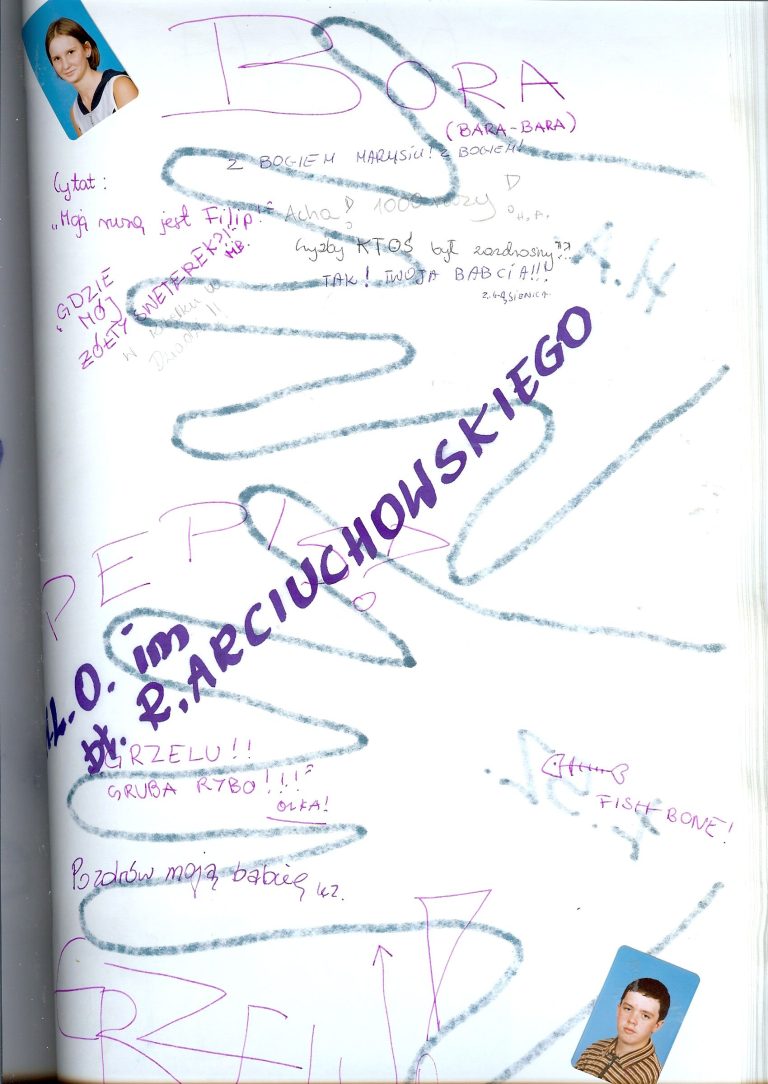 BORA
(BARA-BARA)
Z BOGIEM MARYSIU! Z BOGIEM!
Cytat:
"Moją muzą jest Filip!" Acha! 1000 razy! H.A.
Czyżby KTOŚ był zazdrosny?!?
TAK! TWOJA BABCIA!!!
Z. GĄSIENICA
"GDZIE
MÓJ
ŻÓŁTY SWETEREK?!"
MB.
A.H.
PEPISZ!
L.O. im
bł. R. ARCIUCHOWSKIEGO
GRZELU!!
GRUBA RYBO!!!"
OLKA!
FISH BONE!
Pozdrów moją babcię
GRZELU!